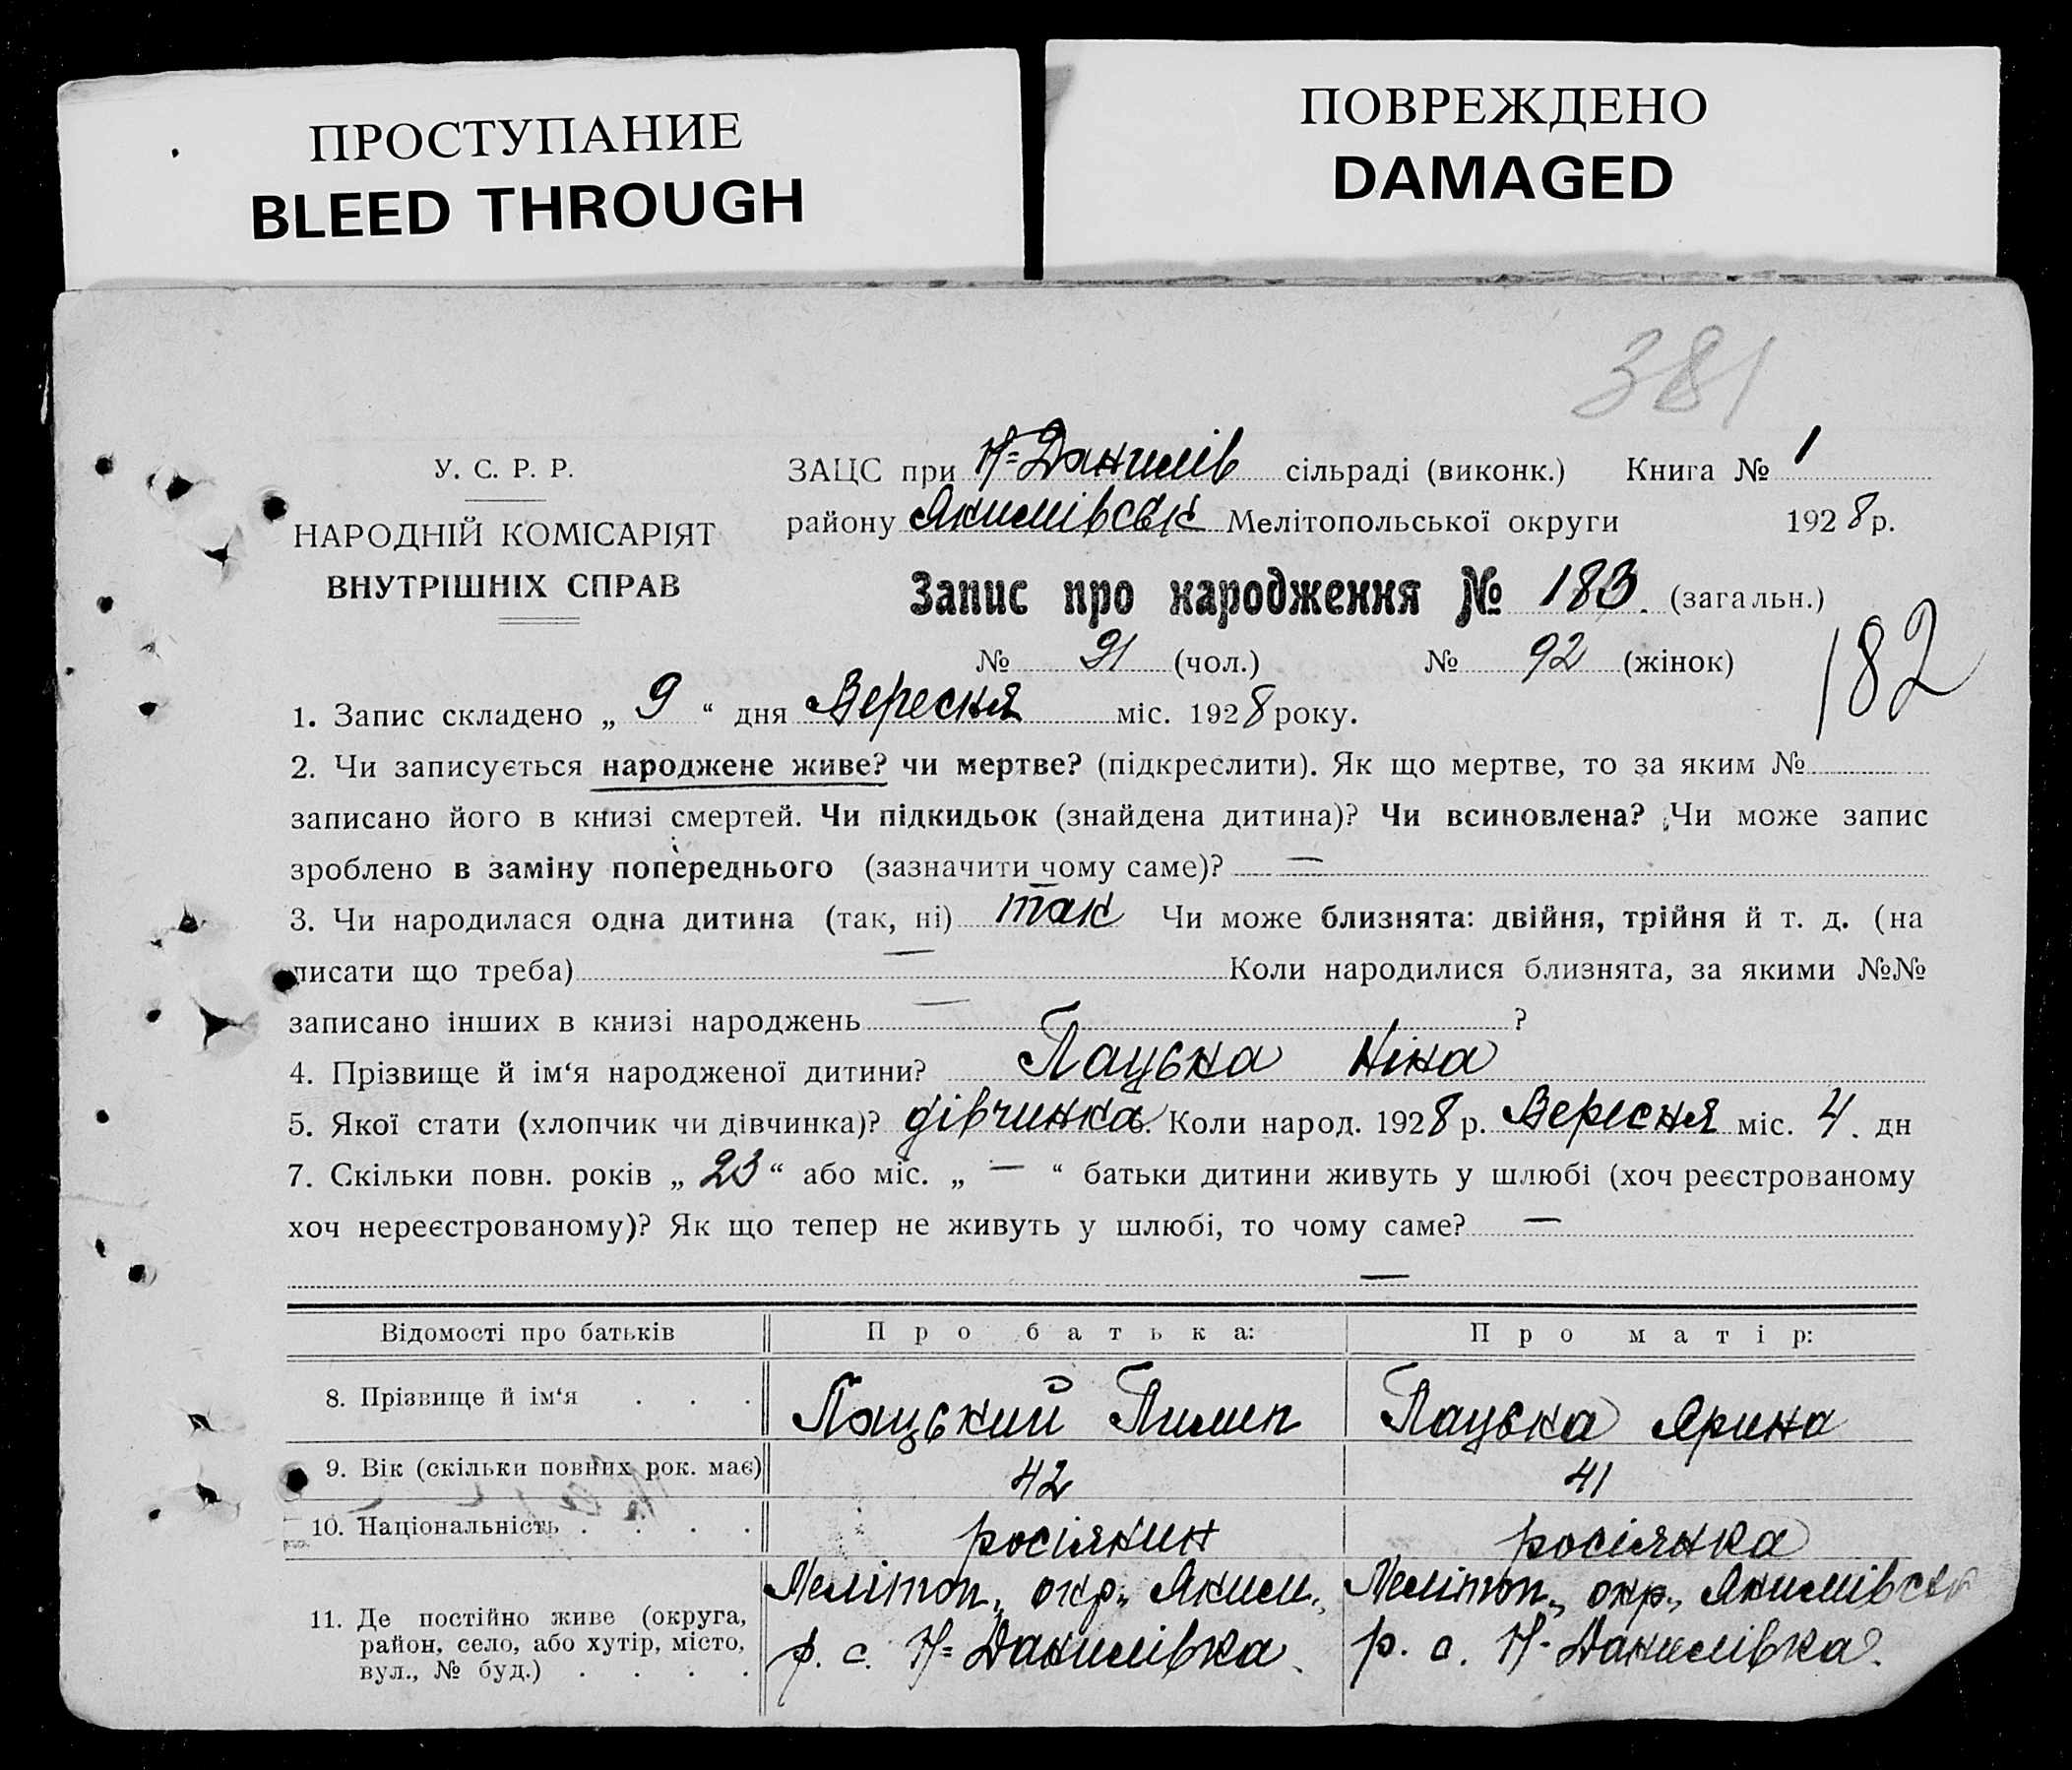 ПРОСТУПАНИЕ
BLEED THROUGH
ПОВРЕЖДЕНО
DAMAGED
381
У. С. Р. Р.
НАРОДНІЙ КОМІСАРІЯТ
ВНУТРІШНІХ СПРАВ
ЗАЦС при Н=Данилів сільраді (виконк.) Книга № 1
району Якимівськ Мелітопольської округи 1928 р.
Запис про народження № 183. (загальн.)
182
№ 91 (чол.) № 92 (жінок)
1. Запис складено „ 9 “ дня Вересня міс. 1928 року.
2. Чи записується народжене живе? чи мертве? (підкреслити). Як що мертве, то за яким №
записано його в книзі смертей. Чи підкидьок (знайдена дитина)? Чи всиновлена? Чи може запис
зроблено в заміну попереднього (зазначити чому саме)? —
3. Чи народилася одна дитина (так, ні) так Чи може близнята: двійня, трійня й т. д. (на
писати що треба) — Коли народилися близнята, за якими №№
записано інших в книзі народжень — ?
4. Прізвище й ім‘я народженої дитини? Пацька Ніна
5. Якої стати (хлопчик чи дівчинка)? дівчинка. Коли народ. 1928 р. Вересня міс. 4. дн
7. Скільки повн. років „ 23 “ або міс. „ — “ батьки дитини живуть у шлюбі (хоч реєстрованому
хоч нереєстрованому)? Як що тепер не живуть у шлюбі, то чому саме? —
—
Відомості про батьків Про батька: Про матір:
8. Прізвище й ім‘я . . . Пацький Пилип Пацька Ярина
9. Вік (скільки повних рок. має) 42 41
10. Національність . . . . росіянин росіянка
11. Де постійно живе (округа, район, село, або хутір, місто, вул., № буд.) . . . .
Мелітоп., окр., Яким., р. с. Н=Данилівка.
Мелітоп., окр., Якимівськ р. с. Н-Данилівка.